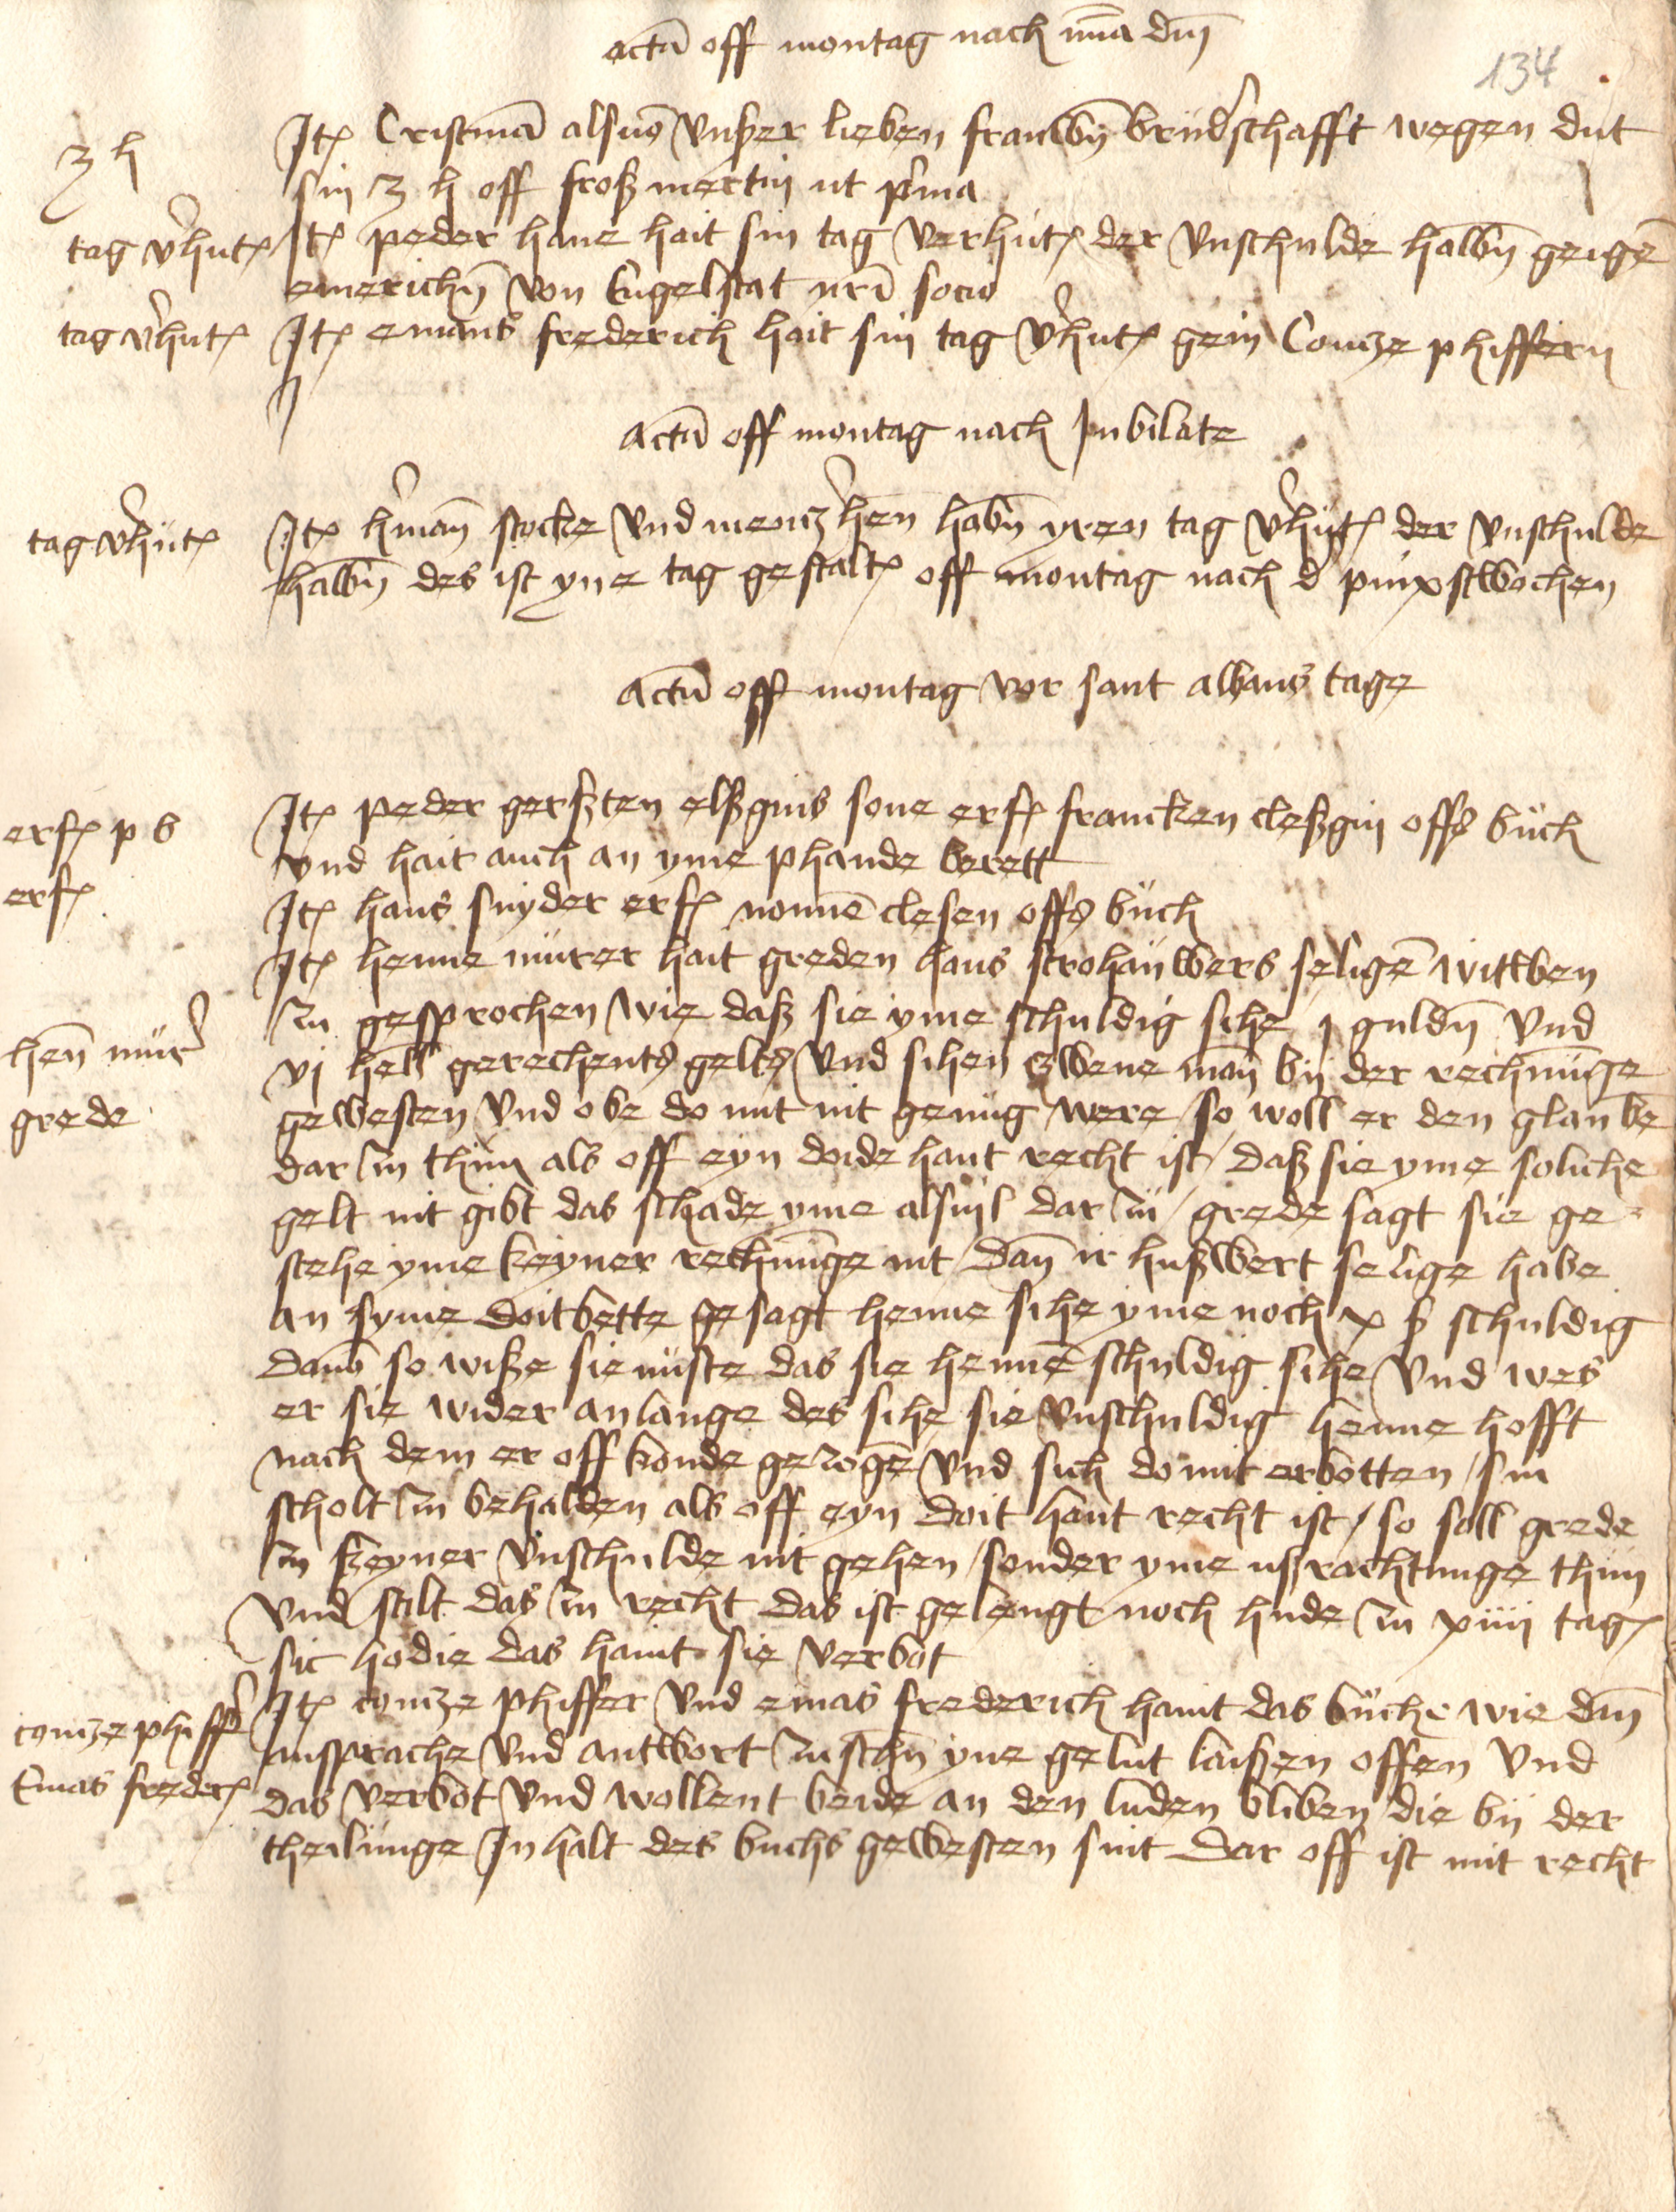 actu᷈ off montag nach mīa dn̄i
134
3 h
Itꝭ Cristmā alsuō vnßer lieben frauwn̄ brud'schafft wegen dut
sin 3 h off froß mertin ut p'ma
tag v'hutꝭ
Itꝭ peder hane hait sin tag verhutꝭ der vnschulde halbn̄ geigē
emerichn̄ von Engelstat nr̄i socio
tag v'hutꝭ
Itꝭ emans frederich hait sin tag v'hutꝭ gein Contze phiffern
Actū off montag nach Jubilate
tag v'hutꝭ
Itꝭ h'man̄ stocke vnd mentz hen habn̄ yren tag v'hutꝭ der vnschulde
halbn̄ des ist yne tag gestaltꝭ off montag nach d pinxstwochen
Actū off montag vor sant albans tage
erfꝭ p b
Itꝭ peder gerßten elßgins sone erfꝭ francken cleßgin offs buch
vnd hait auch an yme phande berett
erfꝭ
Itꝭ hans snyder erfꝭ nonnē clesen offs buch
Itꝭ henne murer hait greden hans strohauwers seligē wittwen
zu gesprochen wie daß sie yme schuldig sihe j guldn̄ vnd
hen̄ mur'
vj hell' gerechents gelts vnd sihen zwene man̄ bij der rechnūge
grede
gewesten vnd obe do mit nit genug were so woll er den glaubē
dar zu thun als off eyn doide hant recht ist / daß sie yme soliche
gelt nit gibt das schade yme alsuil dar zu / grede sagt sie ge-
stehe yme keyner rechnūge nit / dan̄ ir hußwert selige habe
an syme doitbette gesagt henne sihe yme noch x ß schuldig
danō so wiße sie nuste das sie hennē schuldig sihe vnd wes
er sie wider anlange des sihe sie vnschuldig henne hofft
nach dem er off konde gezogē vnd sich do mit erbotten / sin
scholt zu behalden als off eyn doit hant recht ist / so soll grede
zu keyner vnschulde nit gehen / sonder yme ußrachtunge thun
vnd stilt das zu recht das ist gelengt noch hude zu xiiij tagꝭ
sic hodie das haint sie verbot
contze phiffer'
Itꝭ contze phiffer vnd emas frederich haint das buche wie dan̄
ansprache vnd antwort zuschn̄ yne gelut laißen offen vnd
Emas frederꝭ
das verbot vnd wollent beide an den luden bliben die bij der
theilunge Inhalt des buchs gewesten sint dar off ist mit recht